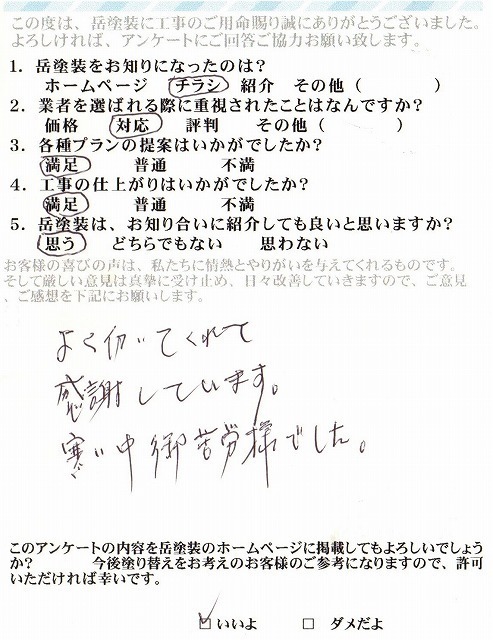 この度は、岳塗装に工事のご用命賜り誠にありがとうございました。
よろしければ、アンケートにご回答ご協力お願い致します。
1. 岳塗装をお知りになったのは？
ホームページ チラシ 紹介 その他（ ）
2. 業者を選ばれる際に重視されたことはなんですか？
価格 対応 評判 その他（ ）
3. 各種プランの提案はいかがでしたか？
満足 普通 不満
4. 工事の仕上がりはいかがでしたか？
満足 普通 不満
5. 岳塗装は、お知り合いに紹介しても良いと思いますか？
思う どちらでもない 思わない
お客様の喜びの声は、私たちに情熱とやりがいを与えてくれるものです。
そして厳しい意見は真摯に受け止め、日々改善していきますので、ご意見
、ご感想を下記にお願いします。
よく仂いてくれて
感謝しています。
寒い中御苦労様でした。
このアンケートの内容を岳塗装のホームページに掲載してもよろしいでしょう
か？ 今後塗り替えをお考えのお客様のご参考になりますので、許可
いただければ幸いです。
☑ いいよ □ ダメだよ